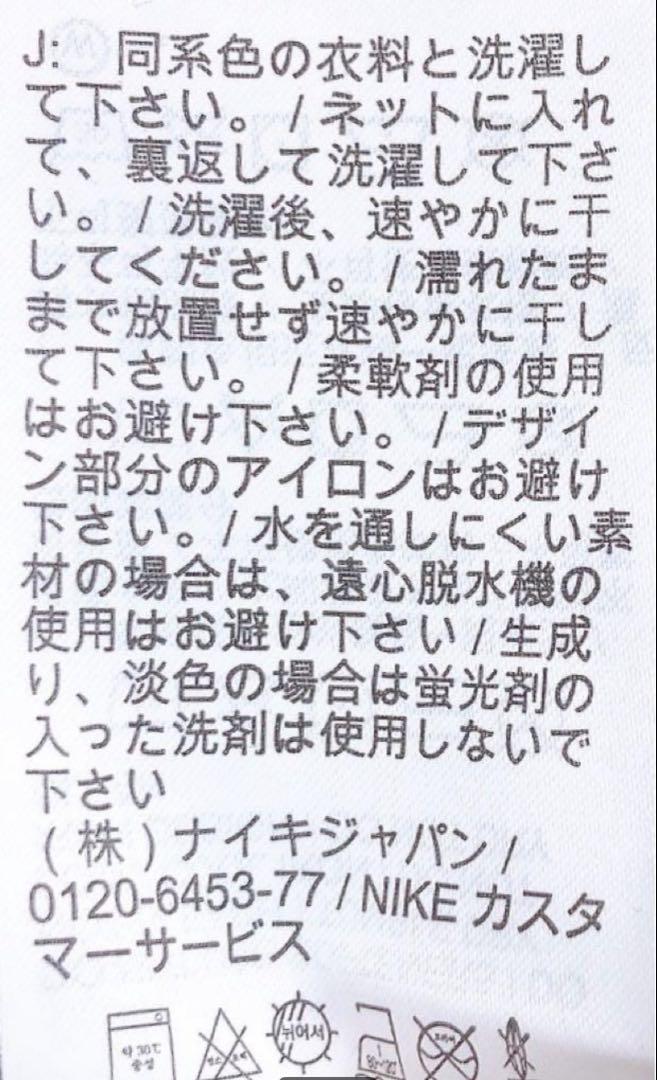 J: 同系色の衣料と洗濯し
て下さい。 / ネットに入れ
て、裏返して洗濯して下さ
い。 / 洗濯後、速やかに干
してください。 / 濡れたま
まで放置せず速やかに干し
て下さい。 / 柔軟剤の使用
はお避け下さい。 / デザイ
ン部分のアイロンはお避け
下さい。/ 水を通しにくい素
材の場合は、遠心脱水機の
使用はお避け下さい / 生成
り、淡色の場合は蛍光剤の
入った洗剤は使用しないで
下さい
(株) ナイキジャパン /
0120-6453-77 / NIKE カスタ
マーサービス
약 30℃
중성
뉘어서